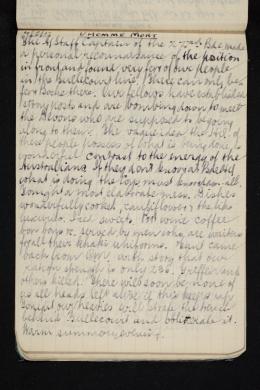 L'HOMME MORT
The G Staff Captain of the Bde made
a personal reconnaissance of the position
in front and found very few of our people
in the Bullecourt line. There can only be a
few Boche there. Our fellows have established
strong posts and are bombing down to meet
the who are supposed to be going
along to them. The vague idea the Staff of
these people possess of what is being done, is a
wonderful contrast to the energy of the
Australians. If they don't know at Bde HQ
what is doing the boys must know
Tonight a most elaborate mess. Fish
wonderfully cooked, cauliflower, & the kids
Iced sweets. Port wine coffee
bon bons &c. served by men who are waiters
for all their khaki uniforms. Hunt came
back from with story that our
strength is only 230. and
others killed. There will soon be none of
us all heads left alive if this keeps up.
Tonight our heavies will strafe the trench
behind Bullecourt and obliterate it.
Warm summer evening.